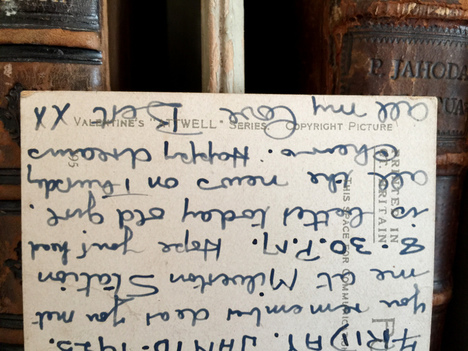 FRIDAY. JAN 16. 1925.
you remember dear you met
me at Milverton Station
8.30. P.M. Hope your head
is better today old girl.
all the news on Thursday
Cheerio. Happy dreams
all my love Bert XX
VALENTINE'S "ATTWELL" SERIES. COPYRIGHT PICTURE
PRINTED IN
BRITAIN
THIS SPACE FOR COMMUNIC
95
P. JAHODA